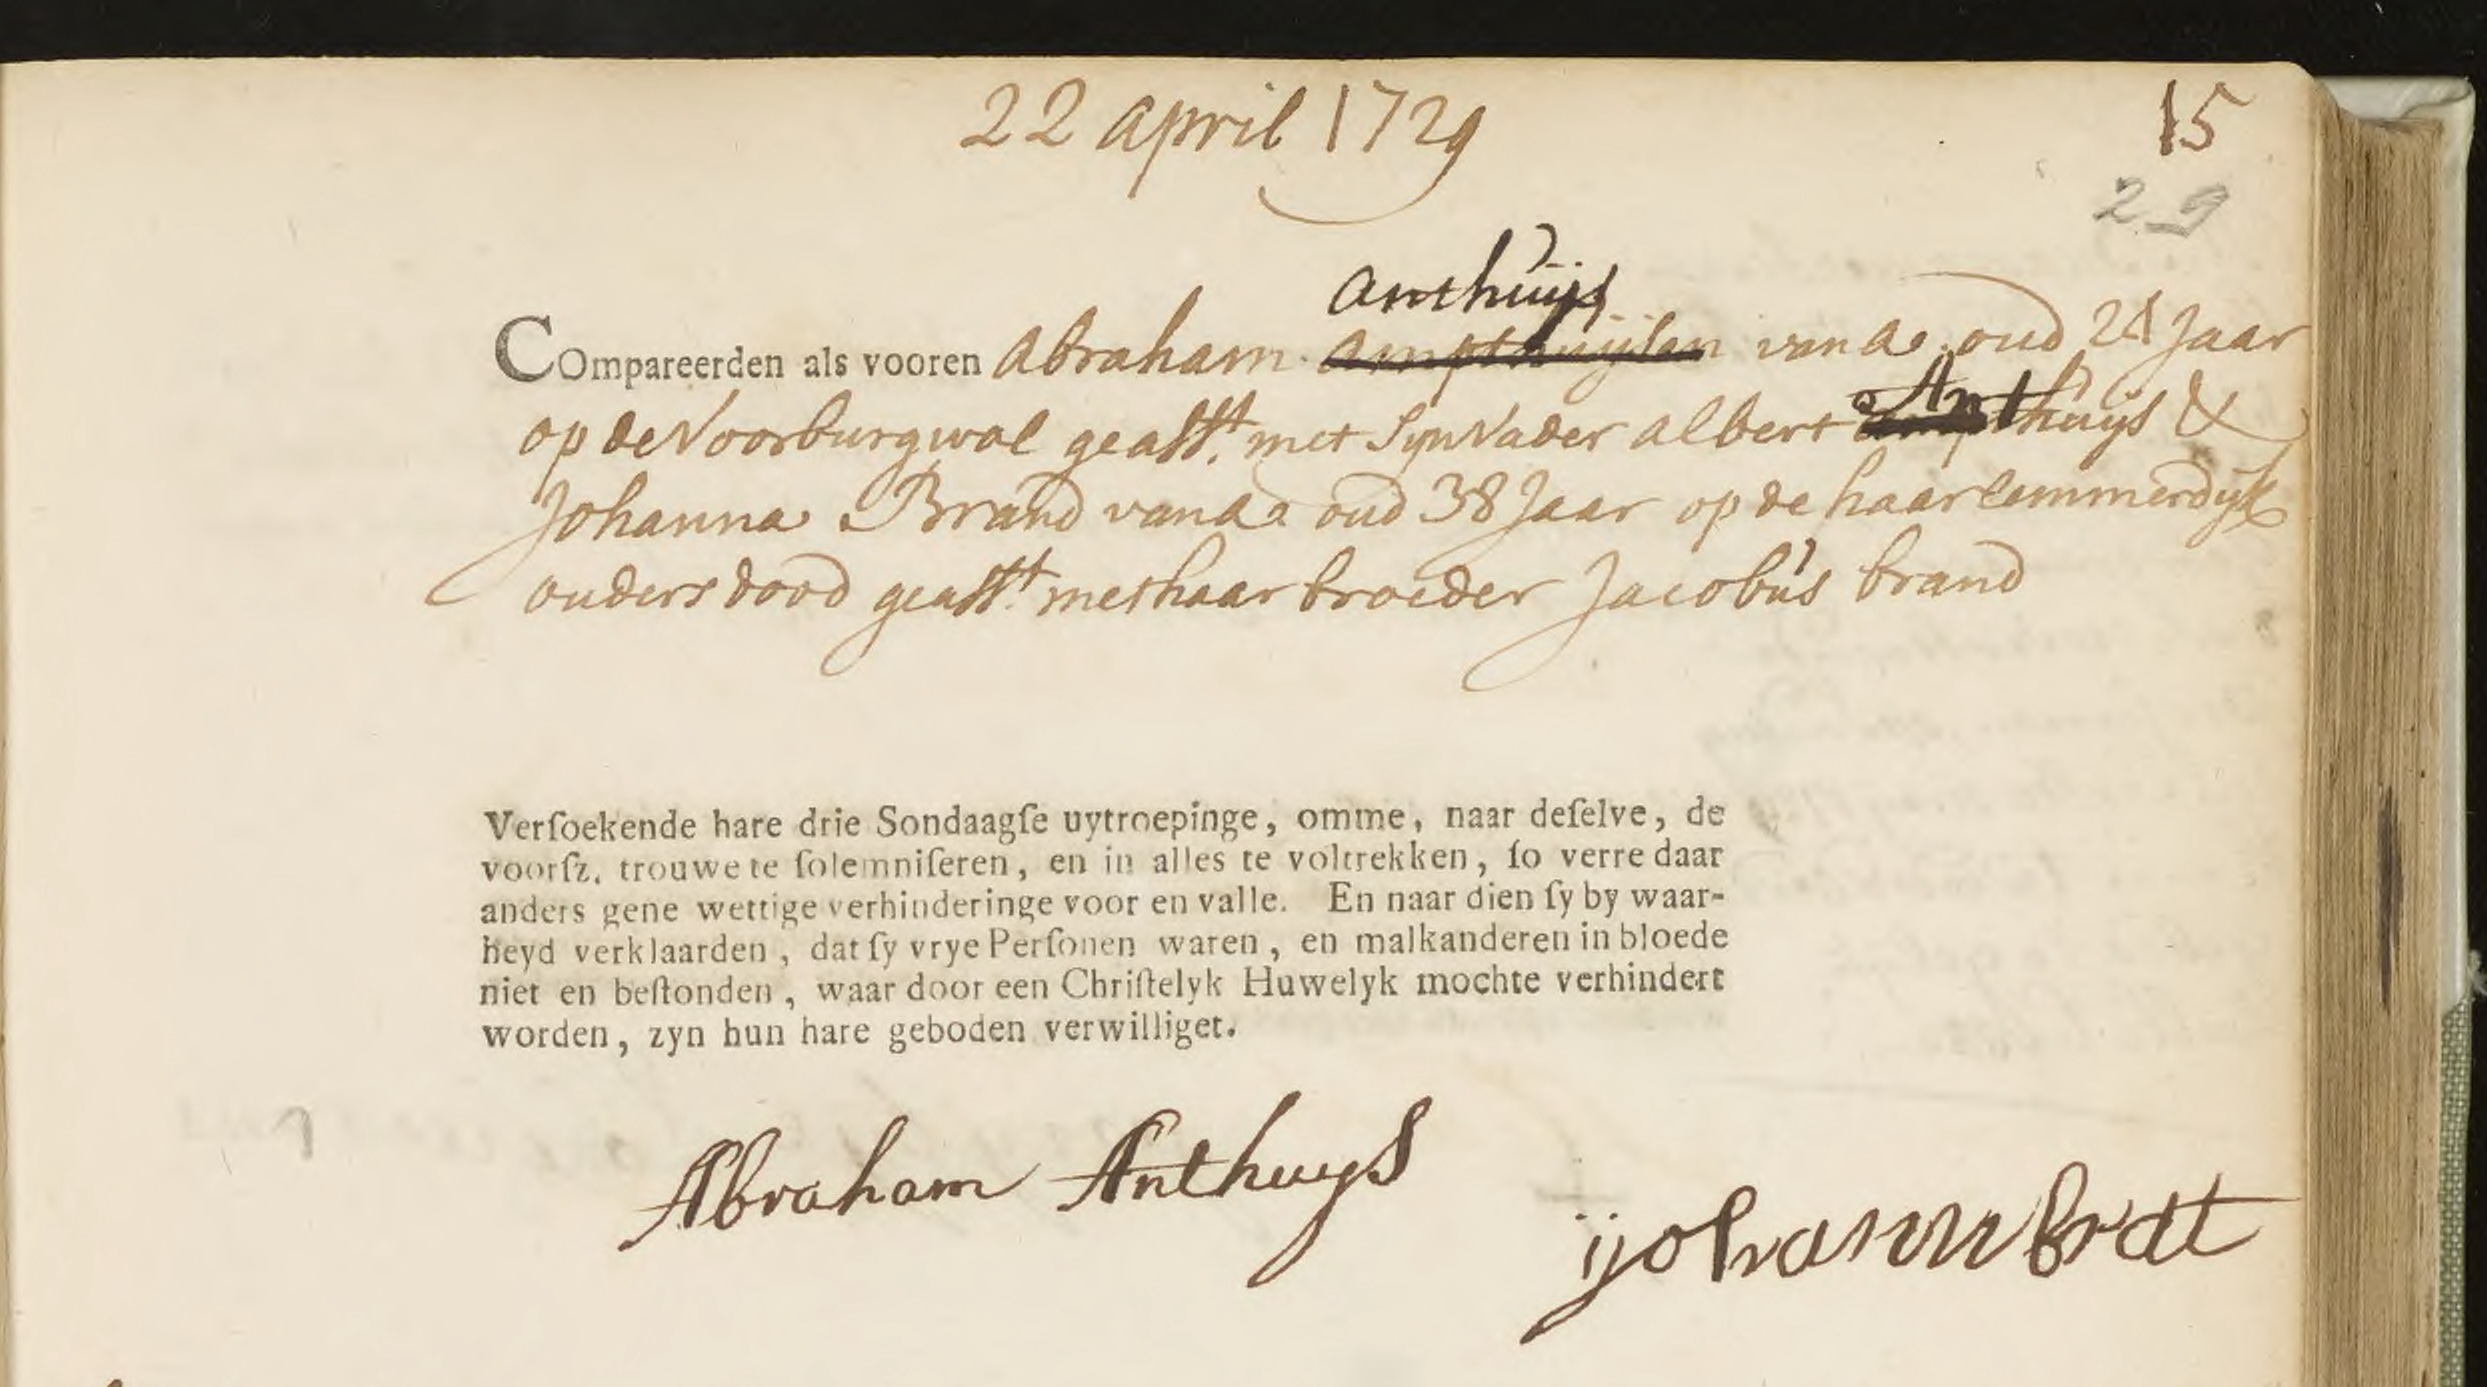 22 april 1729
15
29
anthuijs
COmpareerden als vooren Abraham ampthuijsen van A. oud 24 Jaar
op de Voorburgwal geasst. met Syn Vader albert Anthuijs &
Johanna Brand van A. oud 38 Jaar op de haarlemmerdijk
ouders dood geasst. met haar broeder Jacobus brand
Verſoekende hare drie Sondaagſe uytroepinge, omme, naar deſelve, de
voorſz. trouwe te ſolemniſeren, en in alles te voltrekken, ſo verre daar
anders gene wettige verhinderinge voor en valle. En naar dien ſy by waar-
heyd verklaarden, dat ſy vrye Perſonen waren, en malkanderen in bloede
niet en beſtonden, waar door een Chriſtelyk Huwelyk mochte verhindert
worden, zyn hun hare geboden verwilliget.
Abraham Anthuys
ijohanna brat